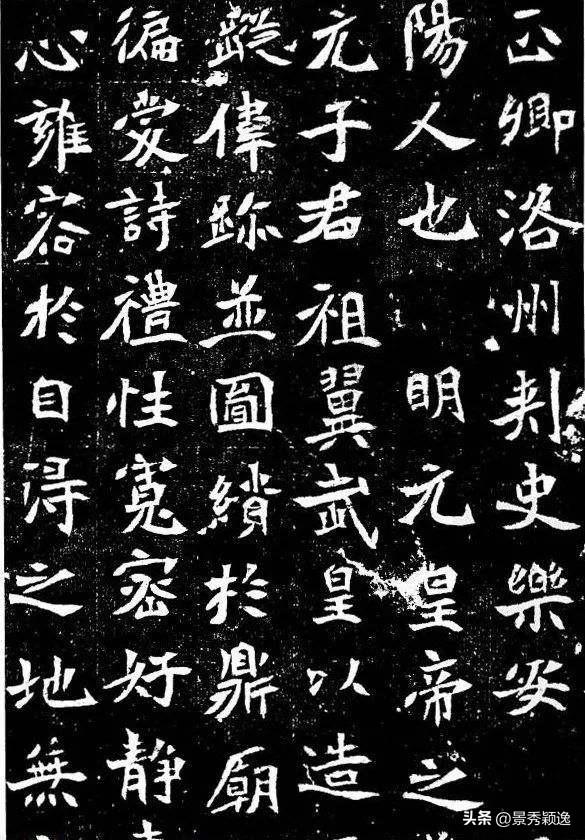 正卿洛州刺史樂安
陽人也 明元皇帝之
元子君祖翼武皇以造
蹤偉跡並圖繢於鼎廟
徧愛詩禮性寬密好靜
心雍容於自得之地無
头条 @景秀颖逸